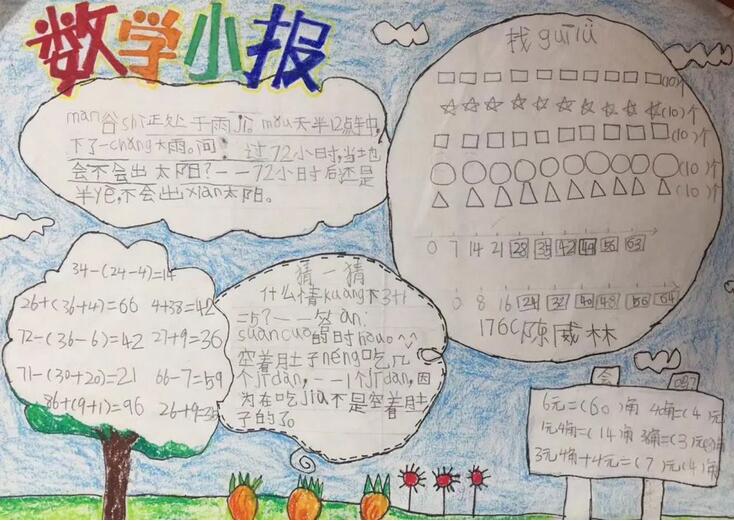 数学小报
màn谷shì正处于雨jì。mǒu天半12点车中,
下了一cháng大雨。问:过72小时,当地
会不会出太阳?——72小时后还是
半yè,不会出xiàn太阳。
找guīlǜ
(10)个
(10)个
(10)个
(10)个
(10)个
0 7 14 21 28 35 42 49 56 63
0 8 16 24 32 40 48 56 64
176C陈威林
34-(24-4)=14
26+(36+4)=66 4+38=42
72-(36-6)=42 27+9=36
71-(30+20)=21 66-7=59
86+(9+1)=96 26+9=35
猜一猜
什么情kuàng下3+1
=5?——答àn:
suàncuò的时hou。
空着肚子néng吃几
个jīdàn,——1个jīdàn,因
为在吃jiù不是空着肚
子的了。
6元=(60)角 4角=(4)元
1元4角=(14)角 3角=(3)元角
3元4角+4元=(7)元(4)角